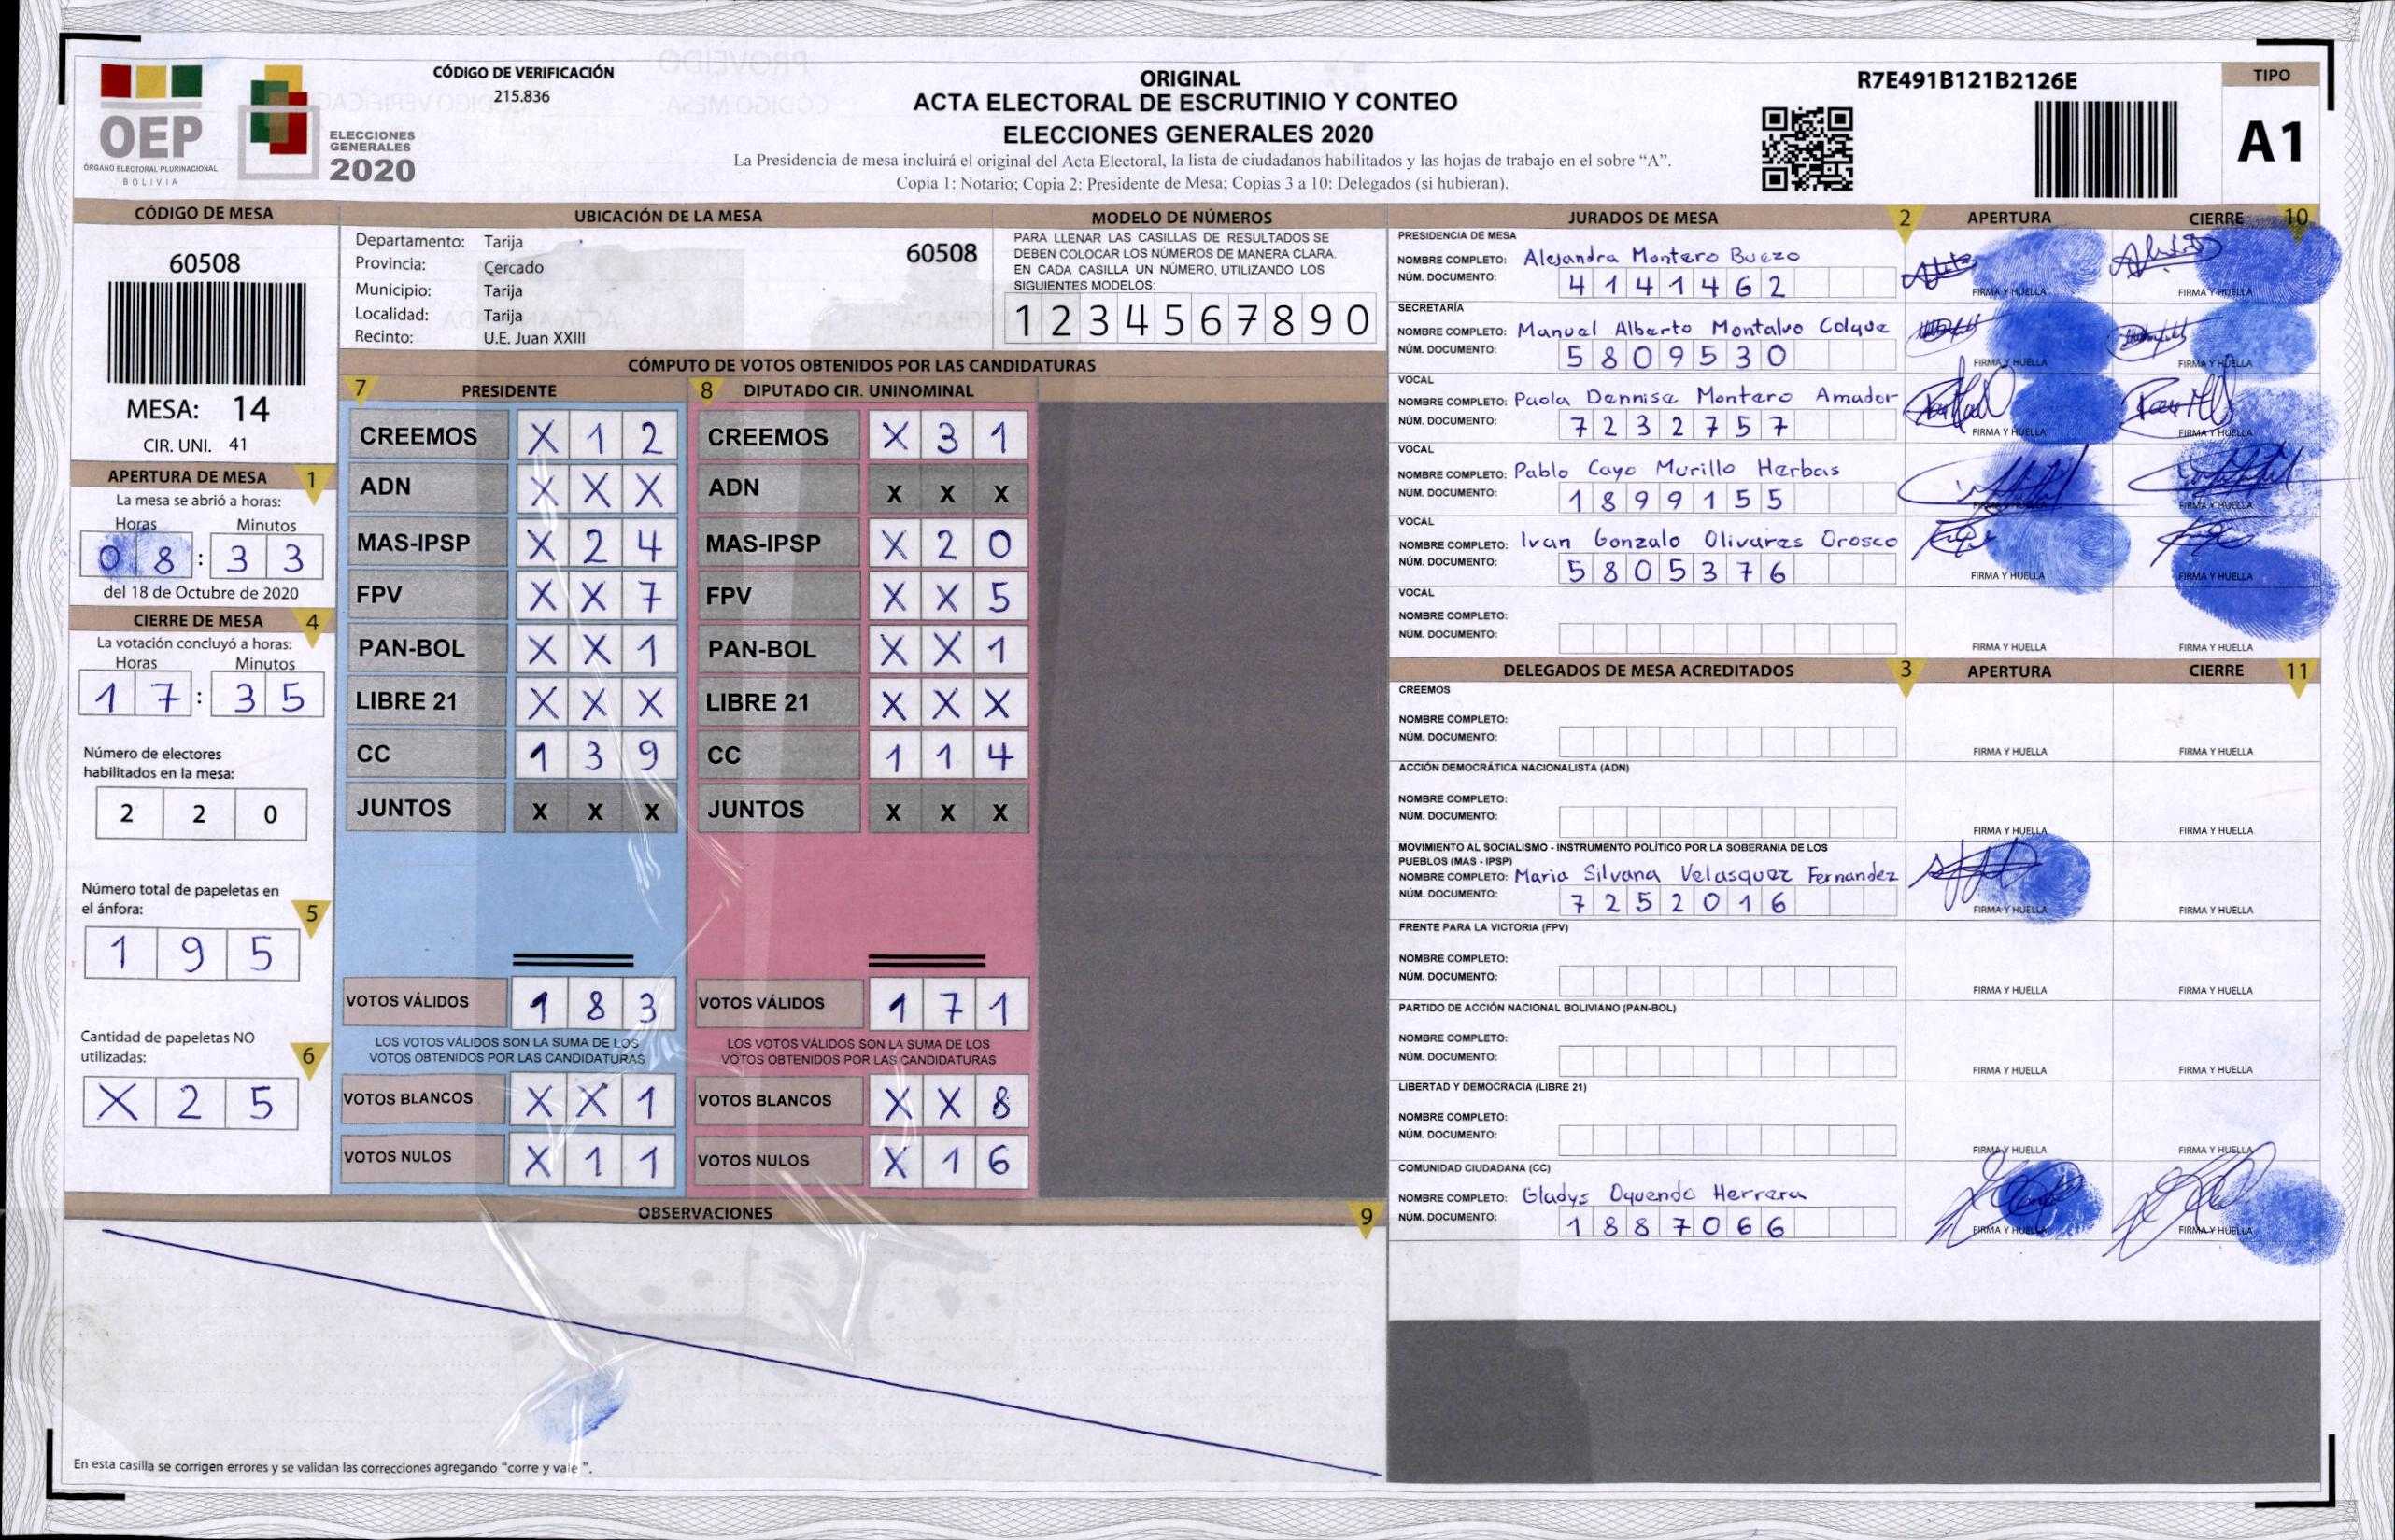 CÓDIGO DE VERIFICACIÓN
215.836
OEP
ÓRGANO ELECTORAL PLURINACIONAL
BOLIVIA
ELECCIONES
GENERALES
2020
ORIGINAL
ACTA ELECTORAL DE ESCRUTINIO Y CONTEO
ELECCIONES GENERALES 2020
La Presidencia de mesa incluirá el original del Acta Electoral, la lista de ciudadanos habilitados y las hojas de trabajo en el sobre “A”.
Copia 1: Notario; Copia 2: Presidente de Mesa; Copias 3 a 10: Delegados (si hubieran).
R7E491B121B2126E
TIPO
A1
CÓDIGO DE MESA
60508
MESA: 14
CIR. UNI. 41
APERTURA DE MESA 1
La mesa se abrió a horas:
Horas Minutos
0 8 : 3 3
del 18 de Octubre de 2020
CIERRE DE MESA 4
La votación concluyó a horas:
Horas Minutos
1 7 : 3 5
Número de electores
habilitados en la mesa:
2 2 0
Número total de papeletas en
el ánfora: 5
1 9 5
Cantidad de papeletas NO
utilizadas: 6
X 2 5
UBICACIÓN DE LA MESA
Departamento: Tarija 60508
Provincia: Cercado
Municipio: Tarija
Localidad: Tarija
Recinto: U.E. Juan XXIII
MODELO DE NÚMEROS
PARA LLENAR LAS CASILLAS DE RESULTADOS SE
DEBEN COLOCAR LOS NÚMEROS DE MANERA CLARA.
EN CADA CASILLA UN NÚMERO, UTILIZANDO LOS
SIGUIENTES MODELOS:
1 2 3 4 5 6 7 8 9 0
CÓMPUTO DE VOTOS OBTENIDOS POR LAS CANDIDATURAS
7 PRESIDENTE 8 DIPUTADO CIR. UNINOMINAL
CREEMOS X 1 2 CREEMOS X 3 1
ADN X X X ADN X X X
MAS-IPSP X 2 4 MAS-IPSP X 2 0
FPV X X 7 FPV X X 5
PAN-BOL X X 1 PAN-BOL X X 1
LIBRE 21 X X X LIBRE 21 X X X
CC 1 3 9 CC 1 1 4
JUNTOS X X X JUNTOS X X X
VOTOS VÁLIDOS 1 8 3 VOTOS VÁLIDOS 1 7 1
LOS VOTOS VÁLIDOS SON LA SUMA DE LOS LOS VOTOS VÁLIDOS SON LA SUMA DE LOS
VOTOS OBTENIDOS POR LAS CANDIDATURAS VOTOS OBTENIDOS POR LAS CANDIDATURAS
VOTOS BLANCOS X X 1 VOTOS BLANCOS X X 8
VOTOS NULOS X 1 1 VOTOS NULOS X 1 6
OBSERVACIONES 9
En esta casilla se corrigen errores y se validan las correcciones agregando “corre y vale ”.
JURADOS DE MESA 2 APERTURA CIERRE 10
PRESIDENCIA DE MESA
NOMBRE COMPLETO: Alejandra Montero Buezo
NÚM. DOCUMENTO: 4 1 4 1 4 6 2
FIRMA Y HUELLA FIRMA Y HUELLA
SECRETARÍA
NOMBRE COMPLETO: Manuel Alberto Montalvo Colque
NÚM. DOCUMENTO: 5 8 0 9 5 3 0
FIRMA Y HUELLA FIRMA Y HUELLA
VOCAL
NOMBRE COMPLETO: Paola Dennise Montero Amador
NÚM. DOCUMENTO: 7 2 3 2 7 5 7
FIRMA Y HUELLA FIRMA Y HUELLA
VOCAL
NOMBRE COMPLETO: Pablo Cayo Murillo Herbas
NÚM. DOCUMENTO: 1 8 9 9 1 5 5
FIRMA Y HUELLA FIRMA Y HUELLA
VOCAL
NOMBRE COMPLETO: Ivan Gonzalo Olivares Orosco
NÚM. DOCUMENTO: 5 8 0 5 3 7 6
FIRMA Y HUELLA FIRMA Y HUELLA
VOCAL
NOMBRE COMPLETO:
NÚM. DOCUMENTO:
FIRMA Y HUELLA FIRMA Y HUELLA
DELEGADOS DE MESA ACREDITADOS 3 APERTURA CIERRE 11
CREEMOS
NOMBRE COMPLETO:
NÚM. DOCUMENTO:
FIRMA Y HUELLA FIRMA Y HUELLA
ACCIÓN DEMOCRÁTICA NACIONALISTA (ADN)
NOMBRE COMPLETO:
NÚM. DOCUMENTO:
FIRMA Y HUELLA FIRMA Y HUELLA
MOVIMIENTO AL SOCIALISMO - INSTRUMENTO POLÍTICO POR LA SOBERANIA DE LOS
PUEBLOS (MAS - IPSP)
NOMBRE COMPLETO: Maria Silvana Velasquez Fernandez
NÚM. DOCUMENTO: 7 2 5 2 0 1 6
FIRMA Y HUELLA FIRMA Y HUELLA
FRENTE PARA LA VICTORIA (FPV)
NOMBRE COMPLETO:
NÚM. DOCUMENTO:
FIRMA Y HUELLA FIRMA Y HUELLA
PARTIDO DE ACCIÓN NACIONAL BOLIVIANO (PAN-BOL)
NOMBRE COMPLETO:
NÚM. DOCUMENTO:
FIRMA Y HUELLA FIRMA Y HUELLA
LIBERTAD Y DEMOCRACIA (LIBRE 21)
NOMBRE COMPLETO:
NÚM. DOCUMENTO:
FIRMA Y HUELLA FIRMA Y HUELLA
COMUNIDAD CIUDADANA (CC)
NOMBRE COMPLETO: Gladys Oquendo Herrera
NÚM. DOCUMENTO: 1 8 8 7 0 6 6
FIRMA Y HUELLA FIRMA Y HUELLA